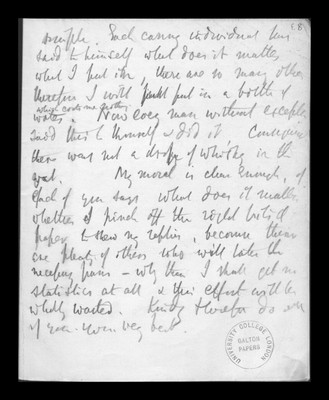 simple. Each canny individual has
said to himself what does it matter
what I put in, there are so many others
therefore I will put in a bottle of
which costs me nothing
water. Now every man without exception
said this to himself & did it Consequence
there was not a drop of whisky in the
vat. My moral is clear enough, if
each of you says what does it matter
whether I pinch off the right bits of
paper to shew my replies, because there
are plenty of others who will take the
necessary pains – why then I shall get no
statistics at all & this effort will be
wholly wasted. Kindly therefore do all
of you your very best.
UNIVERSITY COLLEGE LONDON
GALTON
PAPERS